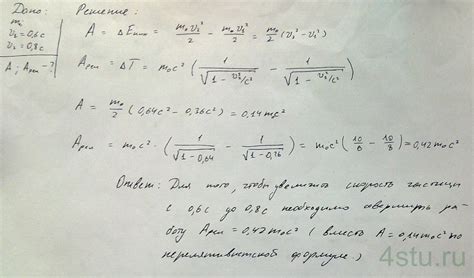 Дано: Решение:
m₀
v₁ = 0,6c
v₂ = 0,8c
A; Aрел - ?
A = ΔEкин = m₀v₂²/2 - m₀v₁²/2 = m₀/2 (v₂² - v₁²)
Aрел = ΔT = m₀c² (1/√(1 - v₂²/c²) - 1/√(1 - v₁²/c²))
A = m₀/2 (0,64c² - 0,36c²) = 0,14m₀c²
Aрел = m₀c² · (1/√(1-0,64) - 1/√(1-0,36)) = m₀c² (10/6 - 10/8) = 0,42m₀c²
Ответ: Для того, чтобы увеличить скорость частицы
с 0,6c до 0,8c необходимо совершить ра-
боту Aрел = 0,42m₀c² (вместо A = 0,14m₀c² по
нерелятивистской формуле.)
4stu.ru